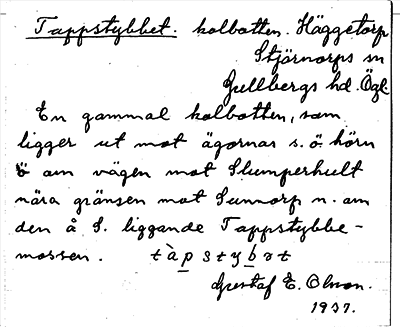 Tappstybbet. kolbotten. Häggetorp
Stjärnorps sn
Gullbergs hd. Ögl.
En gammal kolbotten, som
ligger ut mot ägornas s. ö. hörn
ö om vägen mot Slumperhult
nära gränsen mot Sunnorp n. om
den å S. liggande Tappstybbe-
mossen. tàpstybət
Gustaf E. Olson.
1937.